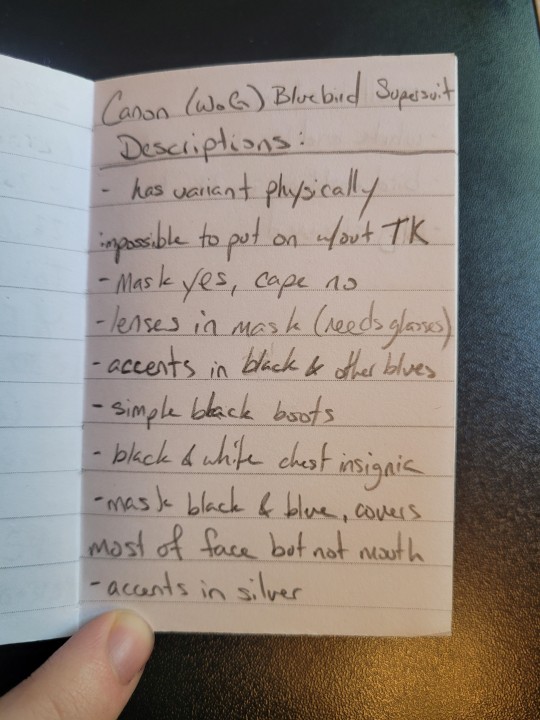 Canon (WoG) Bluebird Supersuit
Descriptions:
- has variant physically
impossible to put on w/out TK
- Mask yes, cape no
- lenses in mask (needs glasses)
- accents in black & other blues
- simple black boots
- black & white chest insignia
- mask black & blue, covers
most of face but not mouth
- accents in silver